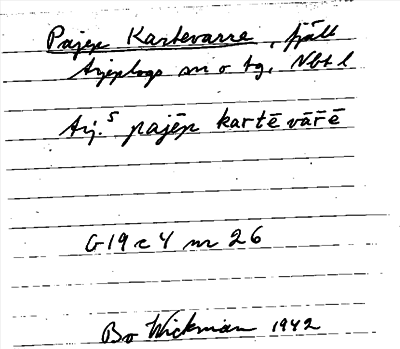 Pajep Kartevarre, fjäll
Arjeplogs sn o tg, Nbt l
Arj.⁵ pajēp kartē vārē
G 19 c 4 nr 26
Bo Wickman 1942